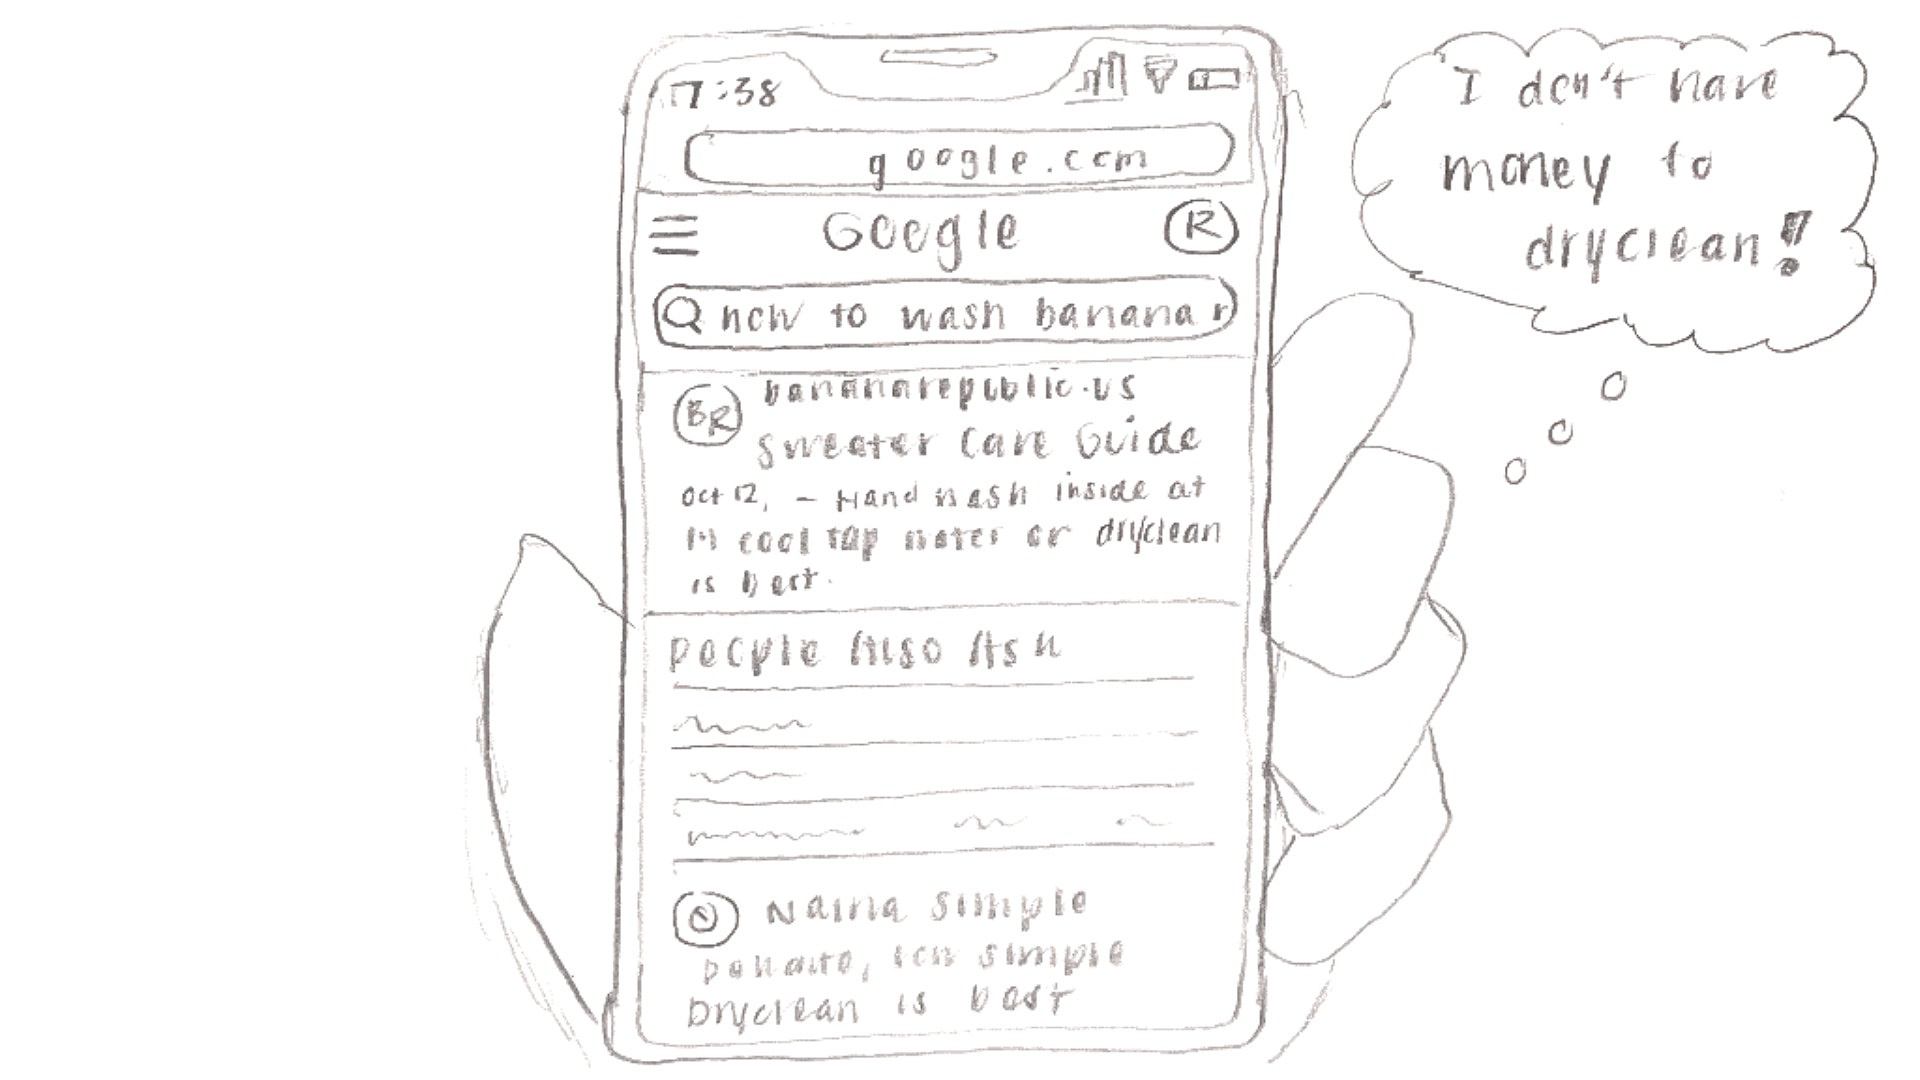 7:38
google.com
Google
R
how to wash banana r
BR
bananarepublic.us
Sweater Care Guide
Oct 12, - Hand wash inside at
cool tap water or dryclean
is best.
People Also Ask
simple
simple
Dryclean is best
I don't have
money to
dryclean!